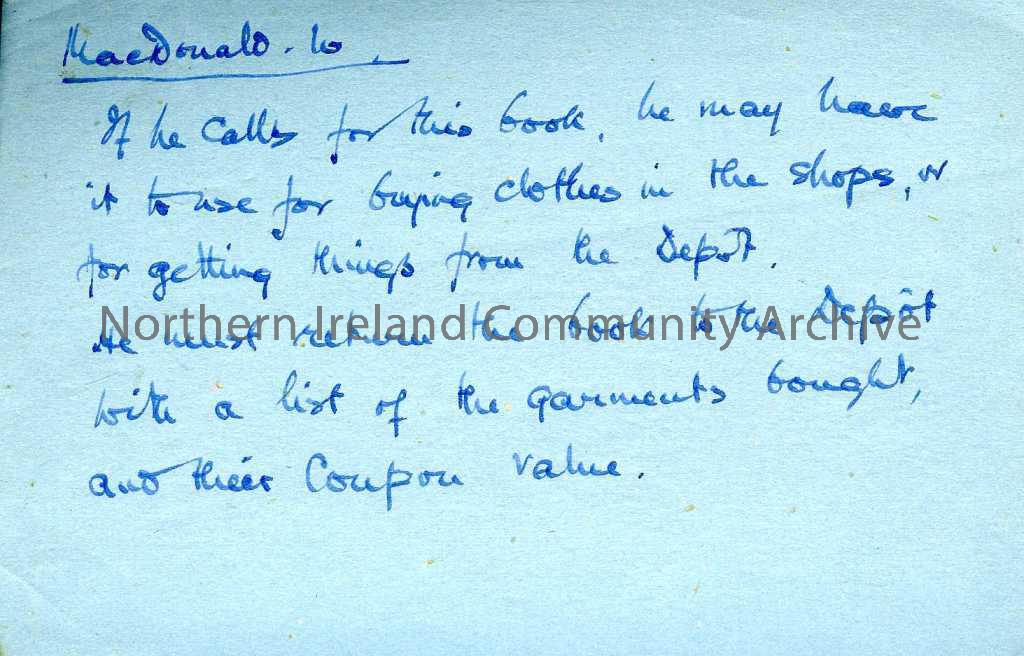 MacDonald. W.
If he calls for this book, he may have
it to use for buying clothes in the shops, or
for getting things from the Depôt.
He must return the book to the Depôt
Northern Ireland Community Archive
with a list of the garments bought,
and their Coupon value.